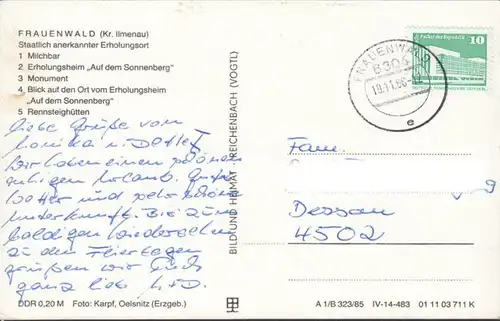 FRAUENWALD (Kr. Ilmenau)
Staatlich anerkannter Erholungsort
1 Milchbar
2 Erholungsheim „Auf dem Sonnenberg“
3 Monument
4 Blick auf den Ort vom Erholungsheim
„Auf dem Sonnenberg“
5 Rennsteighütten
Liebe Grüße von
Monika u. Detlef
wir haben einen schönen
ruhigen Urlaub. Gutes
Wetter und sehr schöne
Unterkunft. Bis zum
baldigen Wiedersehen
zu den Feiertagen
grüßen wir Euch
ganz lieb
DDR 0,20 M Foto: Karpf, Oelsnitz (Erzgeb.)
BILD UND HEIMAT · REICHENBACH (VOGTL)
FRAUENWALD
6304
e
10
Fam.
Dessau
4502
A 1/B 323/85 IV-14-483 01 11 03 711 K